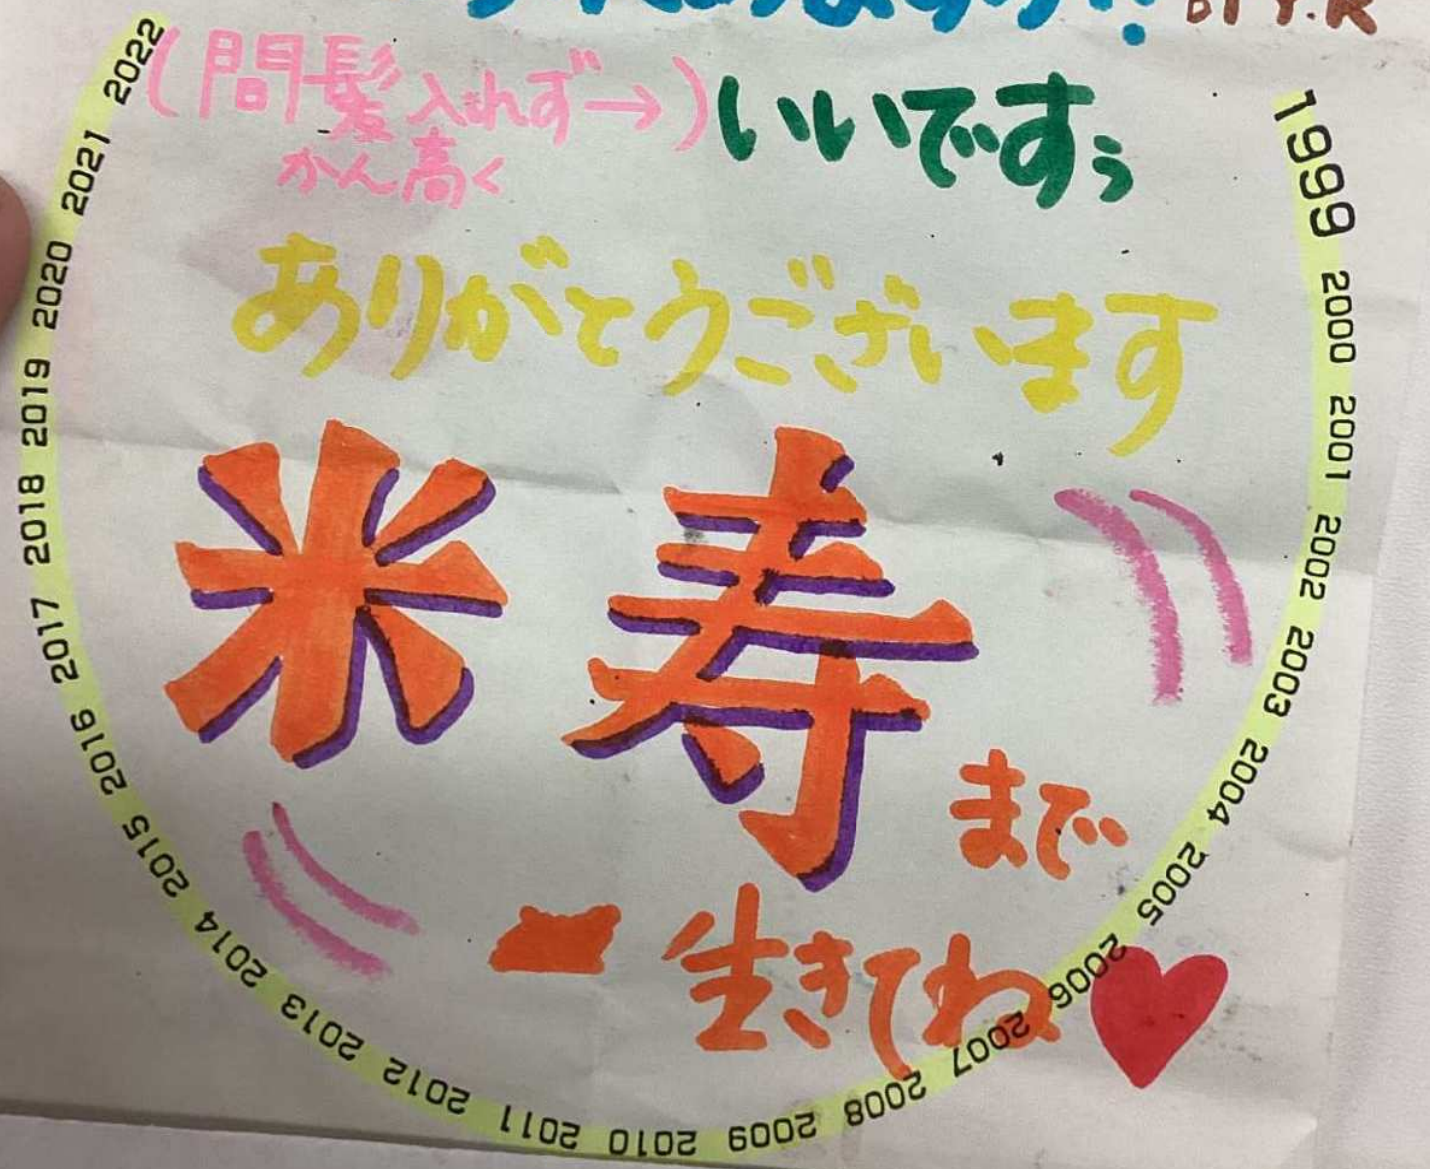 (間髪入れず→)いいですぅ
かん高く
ありがとうございます
米寿まで
生きてね
1999 2000 2001 2002 2003 2004 2005 2006 2007 2008 2009 2010 2011 2012 2013 2014 2015 2016 2017 2018 2019 2020 2021 2022